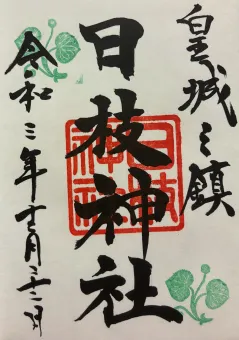 皇城之鎮
日枝神社
日枝神社
令和三年十二月二十二日